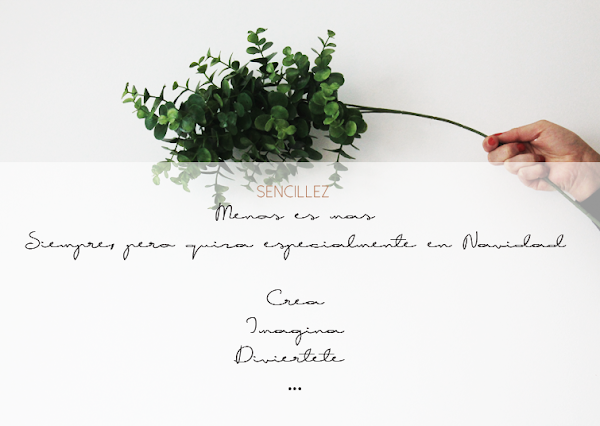 SENCILLEZ
Menos es mas
Siempre, pero quiza especialmente en Navidad
Crea
Imagina
Diviertete
...